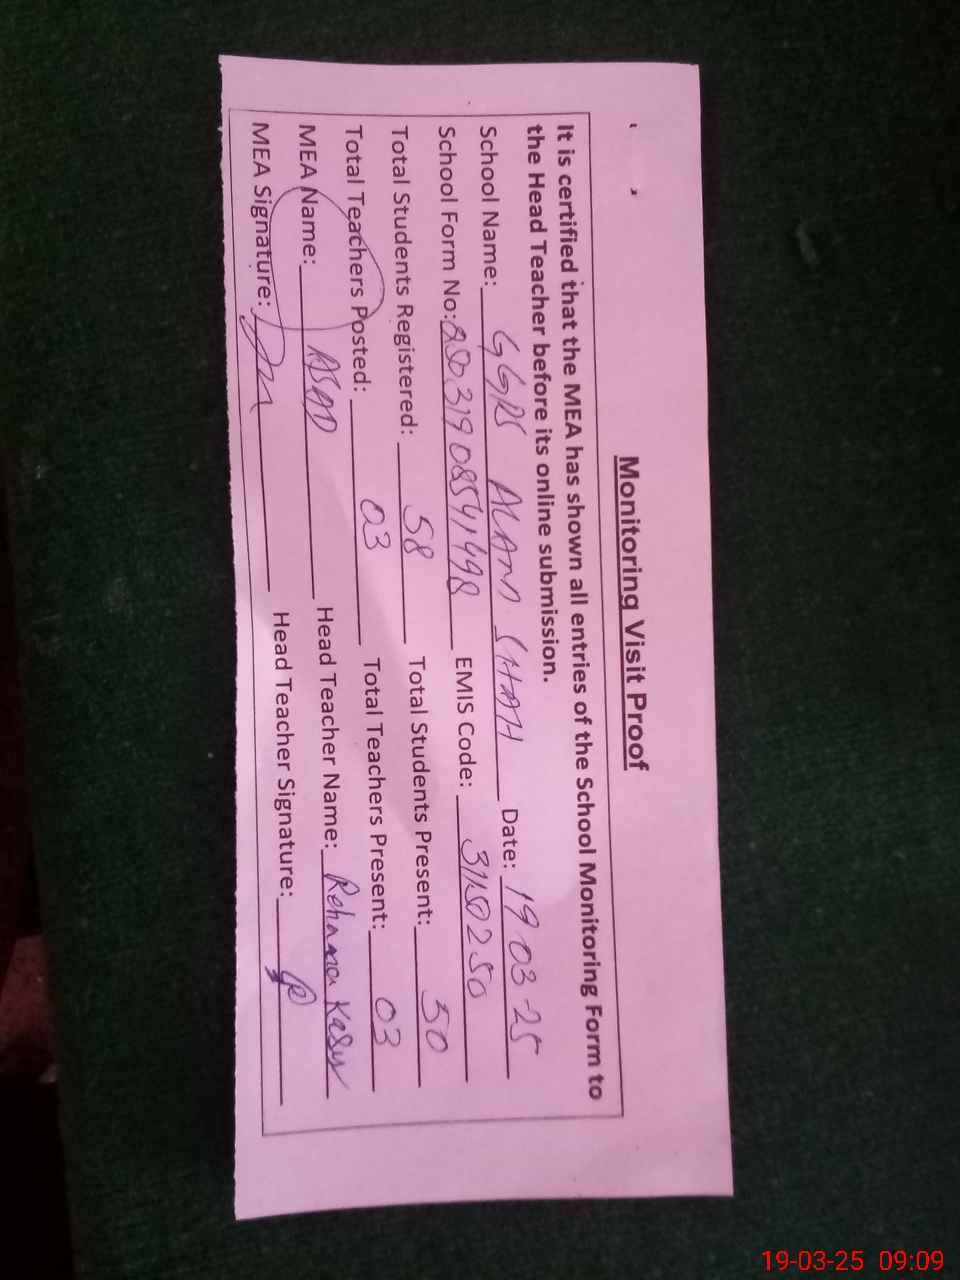 Monitoring Visit Proof
It is certified that the MEA has shown all entries of the School Monitoring Form to
the Head Teacher before its online submission.
School Name: GGPS ALAM SHAH Date: 19-03-25
School Form No: EMIS Code:
Total Students Registered: 58 Total Students Present: 50
Total Teachers Posted: 03 Total Teachers Present: 03
MEA Name: ASAD Head Teacher Name: Rehana
MEA Signature: Head Teacher Signature:
19-03-25 09:09